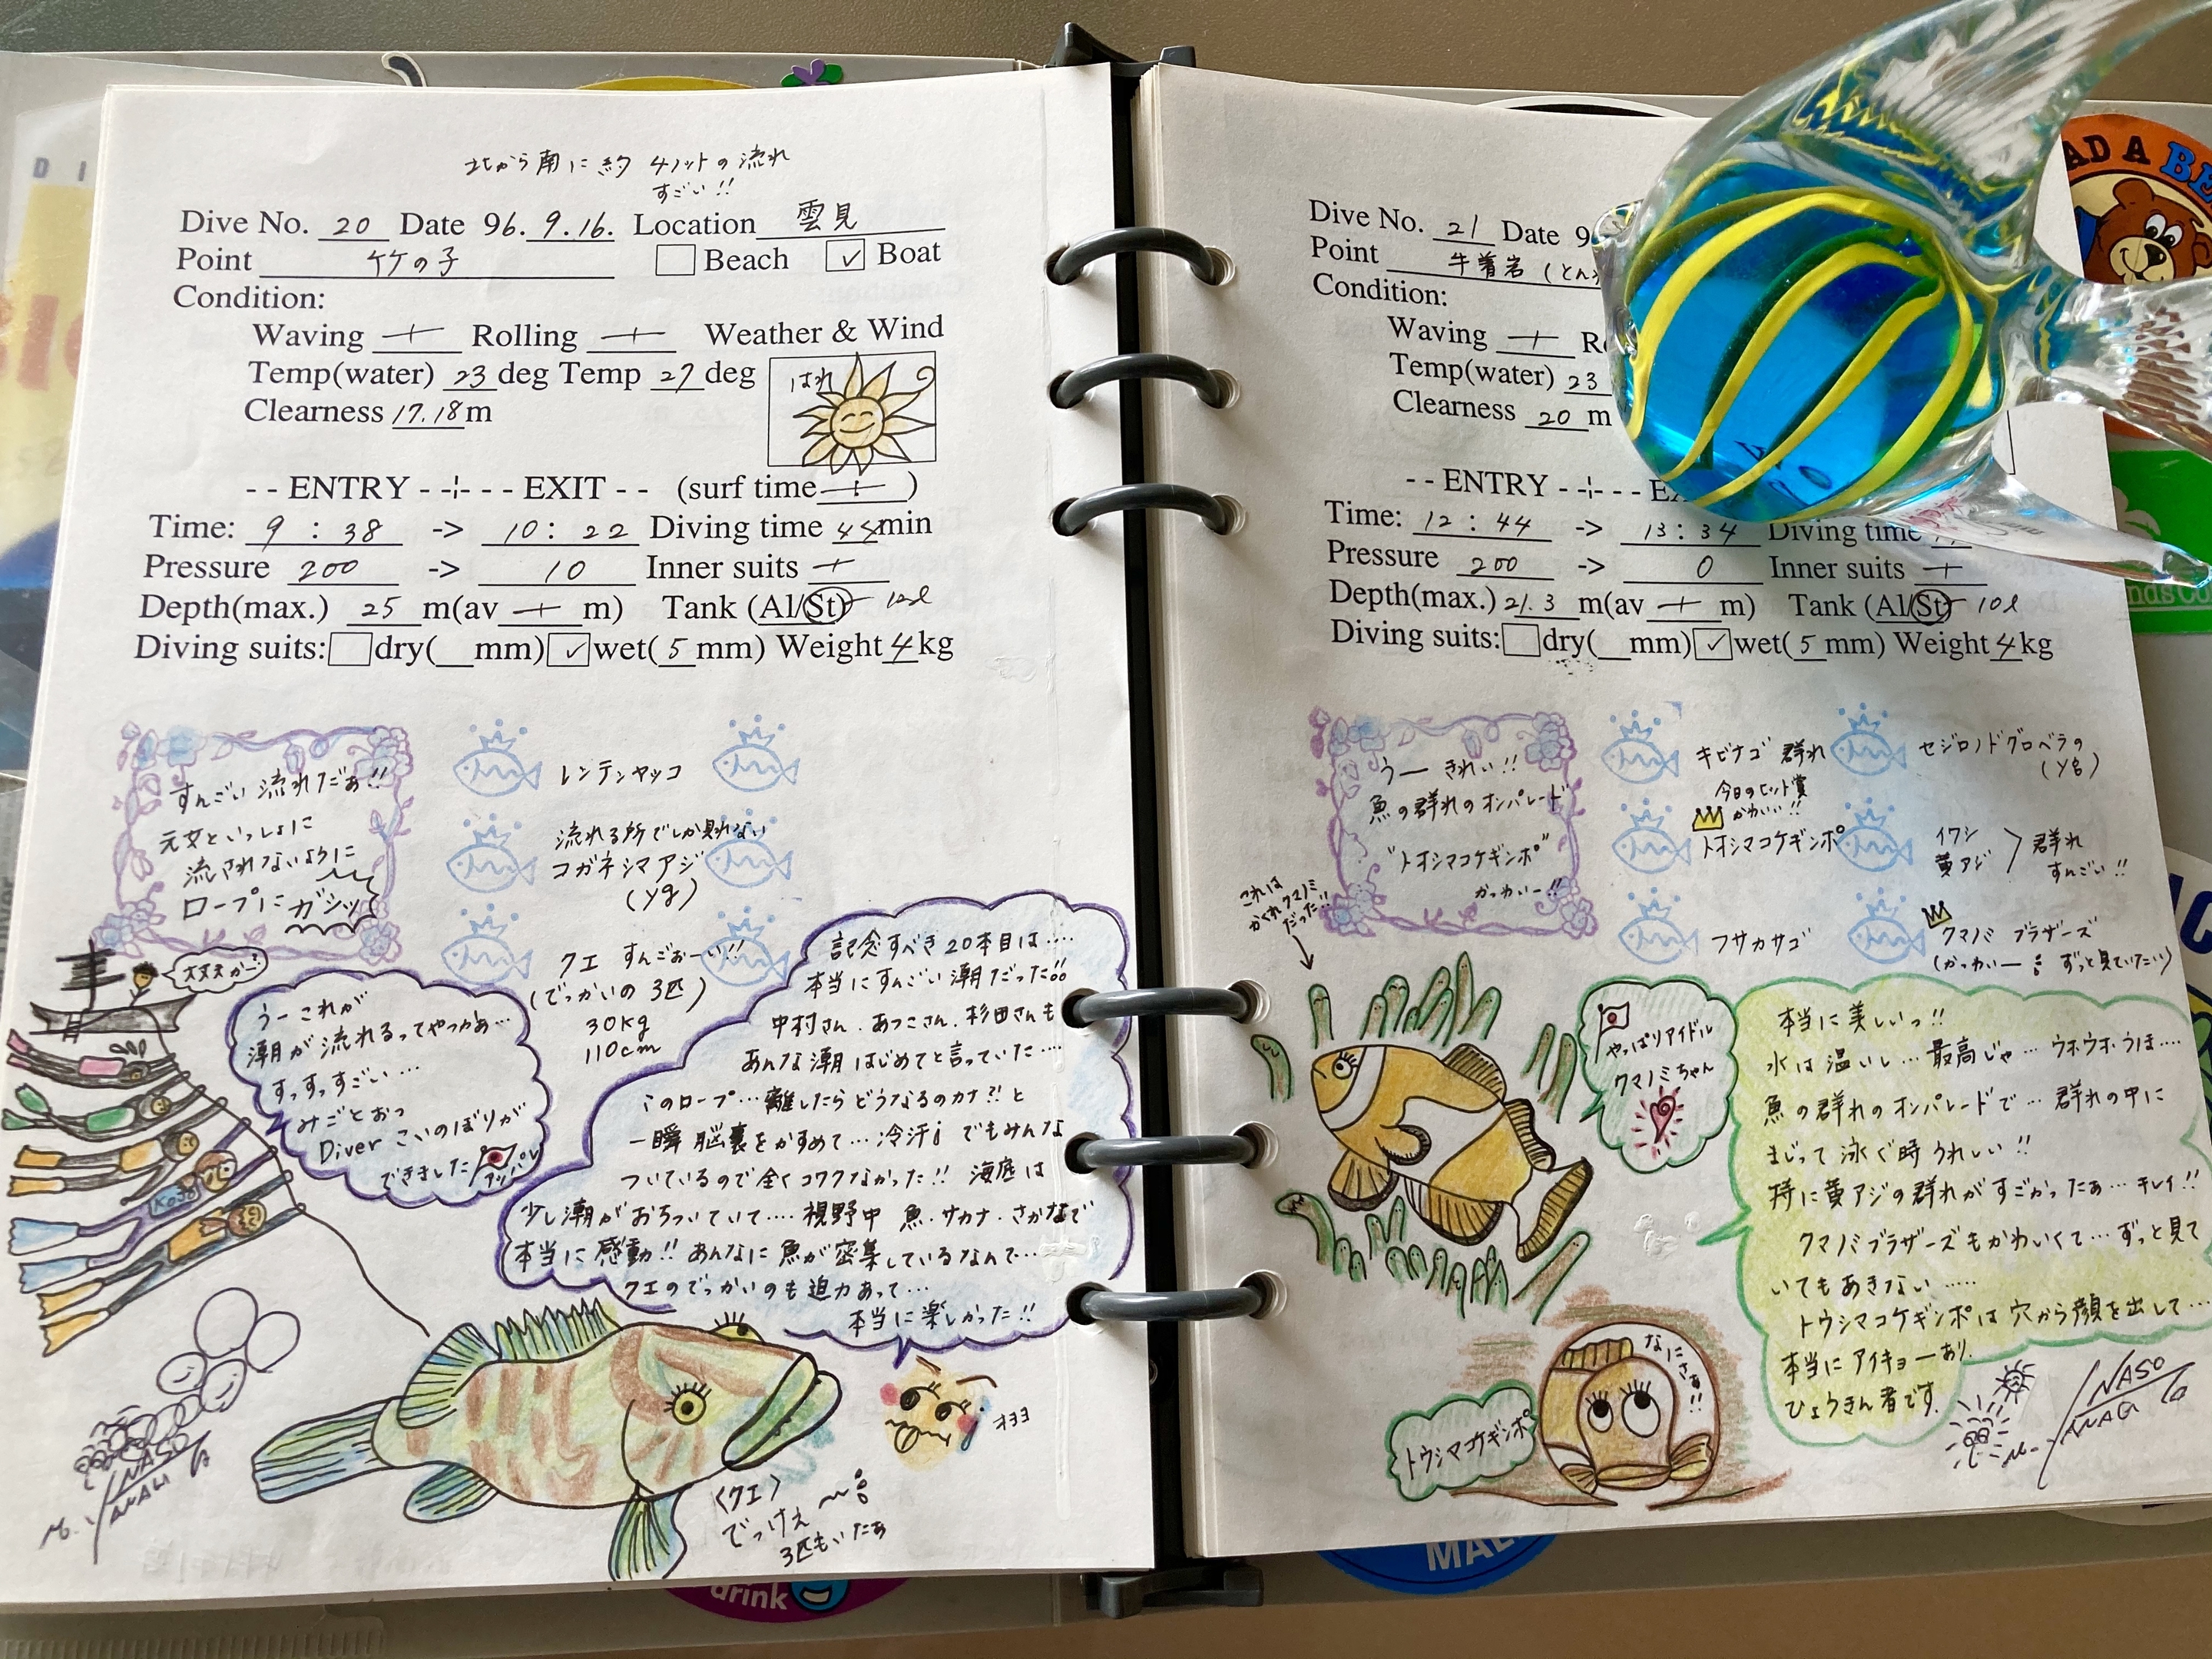 北から南に約 4ノットの流れ
すごい!!
Dive No. 20 Date 96. 9.16. Location 雲見
Point 竹の子 Beach ✓ Boat
Condition:
Waving + Rolling + Weather & Wind
Temp(water) 23 deg Temp 27 deg
はれ
Clearness 17.18 m
- - ENTRY - -¦- - - EXIT - - (surf time + )
Time: 9 : 38 -> 10 : 22 Diving time 44 min
Pressure 200 -> 10 Inner suits +
Depth(max.) 25 m(av + m) Tank (Al/St)
Diving suits: dry(__mm) ✓ wet( 5 mm) Weight 4 kg
すんごい 流れだぁ!!
元文といっしょに
流されないように
ロープに ガシッ
レンテンヤッコ
流れる所でしか見れない
コガネシマアジ
(yg)
クエ すんごぉーい!!
(でっかいの 3匹)
30kg
110cm
大丈夫かー?
うー これが
潮が流れるってやつかぁ…
すっすっすごい…
みごとおっ
Diver こいのぼりが
できました
アッパレ
記念すべき 20本目は….
本当にすんごい潮だった!!
中村さん、あつこさん、杉田さんも
あんな潮 はじめてと言っていた….
このロープ…離したらどうなるのカナ?!と
一瞬 脳裏をかすめて…冷汗 でもみんな
ついているので全くコワクなかった!! 海底は
少し潮がおちついていて….視野中 魚・サカナ・さかなで
本当に感動!! あんなに魚が密集しているなんて…
クエのでっかいのも迫力あって…
本当に楽しかった!!
Kojo
オヨヨ
〈クエ〉
でっけぇ〜
3匹もいたぁ
NASO
Dive No. 21 Date 9
Point 牛着岩 (とん
Condition:
Waving + R
Temp(water) 23
Clearness 20 m
- - ENTRY - -¦- - - EX
Time: 12 : 44 -> 13 : 34 Diving time
Pressure 200 -> 0 Inner suits +
Depth(max.) 21.3 m(av + m) Tank (Al/St) 10ℓ
Diving suits: dry(__mm) ✓ wet( 5 mm) Weight 4 kg
うー きれい!!
魚の群れのオンパレード
"トオシマコケギンポ"
かっわいー!!
キビナゴ 群れ
今日のヒット賞
かわいい!!
トオシマコケギンポ
フサカサゴ
セジロノドグロベラの
(yg)
イワシ
黄アジ
群れ
すんごい!!
クマノミ ブラザーズ
(かっわいー ずっと見ていたい)
これは
かくれクマノミ
だった!!
やっぱりアイドル
クマノミちゃん
本当に美しいっ!!
水は温いし…最高じゃ…ウホウホ・うほ….
魚の群れのオンパレードで…群れの中に
まじって泳ぐ時うれしい!!
特に黄アジの群れがすごかったぁ…キレイ!!
クマノミブラザーズもかわいくて…ずっと見て
いてもあきない…..
トウシマコケギンポは穴から顔を出して…
本当にアイキョーあり.
ひょうきん者です.
なにさぁ!!
トウシマコケギンポ
NASO
drink